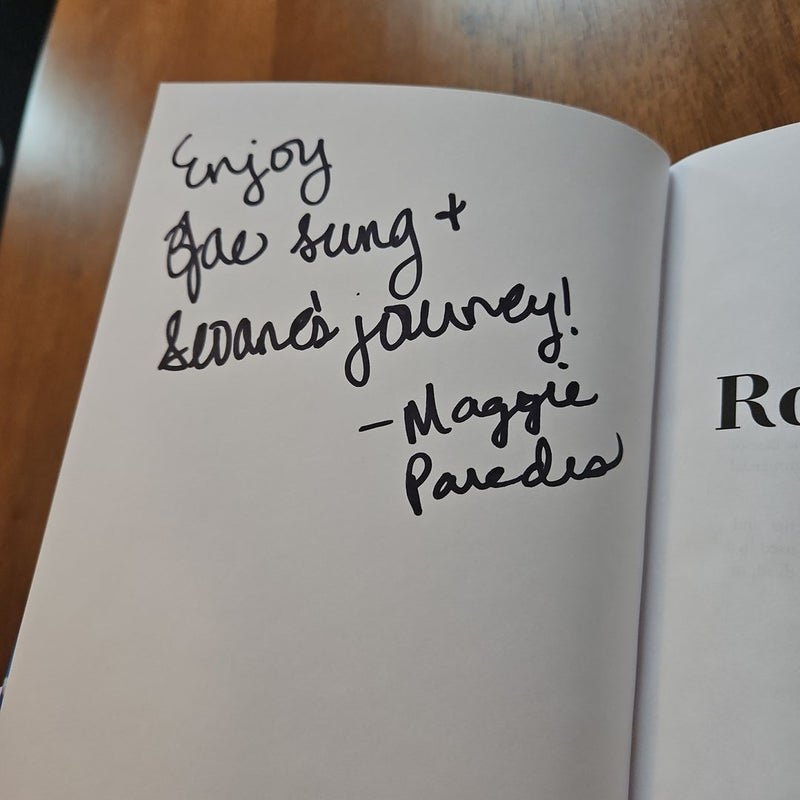 Enjoy
Jae Sung +
Sloane's journey!
- Maggie
Paredes
Ro